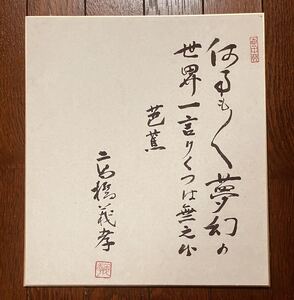 何事も〱夢幻の
世界一言りくつは無之候
芭蕉
高橋義孝